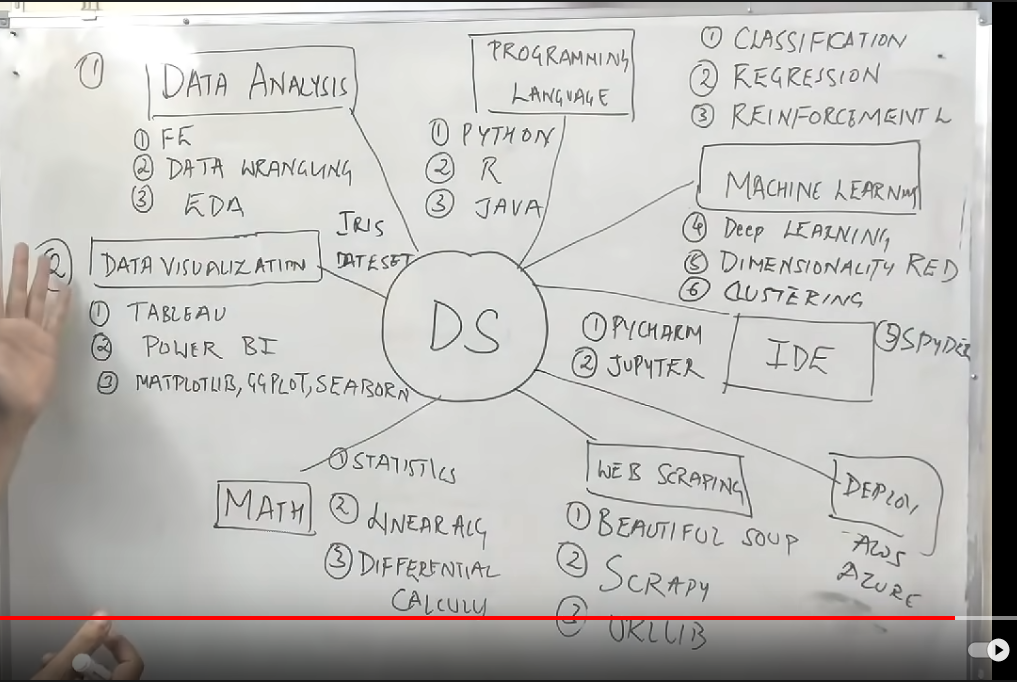 ①
DATA ANALYSIS
① FE
② DATA WRANGLING
③ EDA
PROGRAMMING
LANGUAGE
① PYTHON
② R
③ JAVA
① CLASSIFICATION
② REGRESSION
③ REINFORCEMENT L
MACHINE LEARNING
④ Deep LEARNING
⑤ DIMENSIONALITY RED
⑥ CLUSTERING
IRIS
DATESET
②
DATA VISUALIZATION
① TABLEAU
② POWER BI
③ MATPLOTLIB, GGPLOT, SEABORN
DS
① PYCHARM
② JUPYTER
IDE
③ SPYDER
MATH
① STATISTICS
② LINEAR ALG
③ DIFFERENTIAL
CALCULU
WEB SCRAPING
① BEAUTIFUL SOUP
② SCRAPY
③ URLLIB
DEPLOY
AWS
AZURE